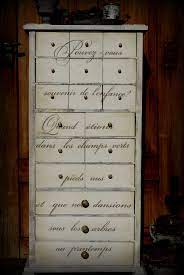 Pouvez-vous
souvenir de l'enfance?
Quand étions
dans les champs verts
pieds nus
et que nous dansions
sous les arbres
au printemps